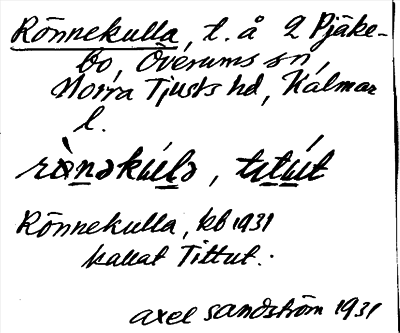 Rönnekulla, t. å 2 Pjäke-
bo, Överums sn,
Norra Tjusts hd, Kalmar
l.
rònəkúlə, tɩtút
Rönnekulla, kb 1931
kallat Tittut.
Axel Sandström 1931